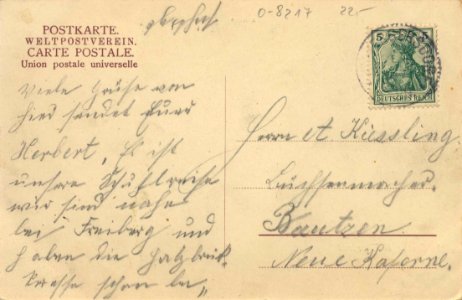 POSTKARTE.
WELTPOSTVEREIN.
CARTE POSTALE.
Union postale universelle
0-8217
22.-
5 5
DEUTSCHES REICH
Viele Grüße von
hier sendet Euer
Herbert. Es ist
unsere Schulreise
wir sind nahe
bei Freiberg und
haben die
schon
Herrn A Kiessling.
Büchsenmacher.
Bautzen
Neue Kaserne.